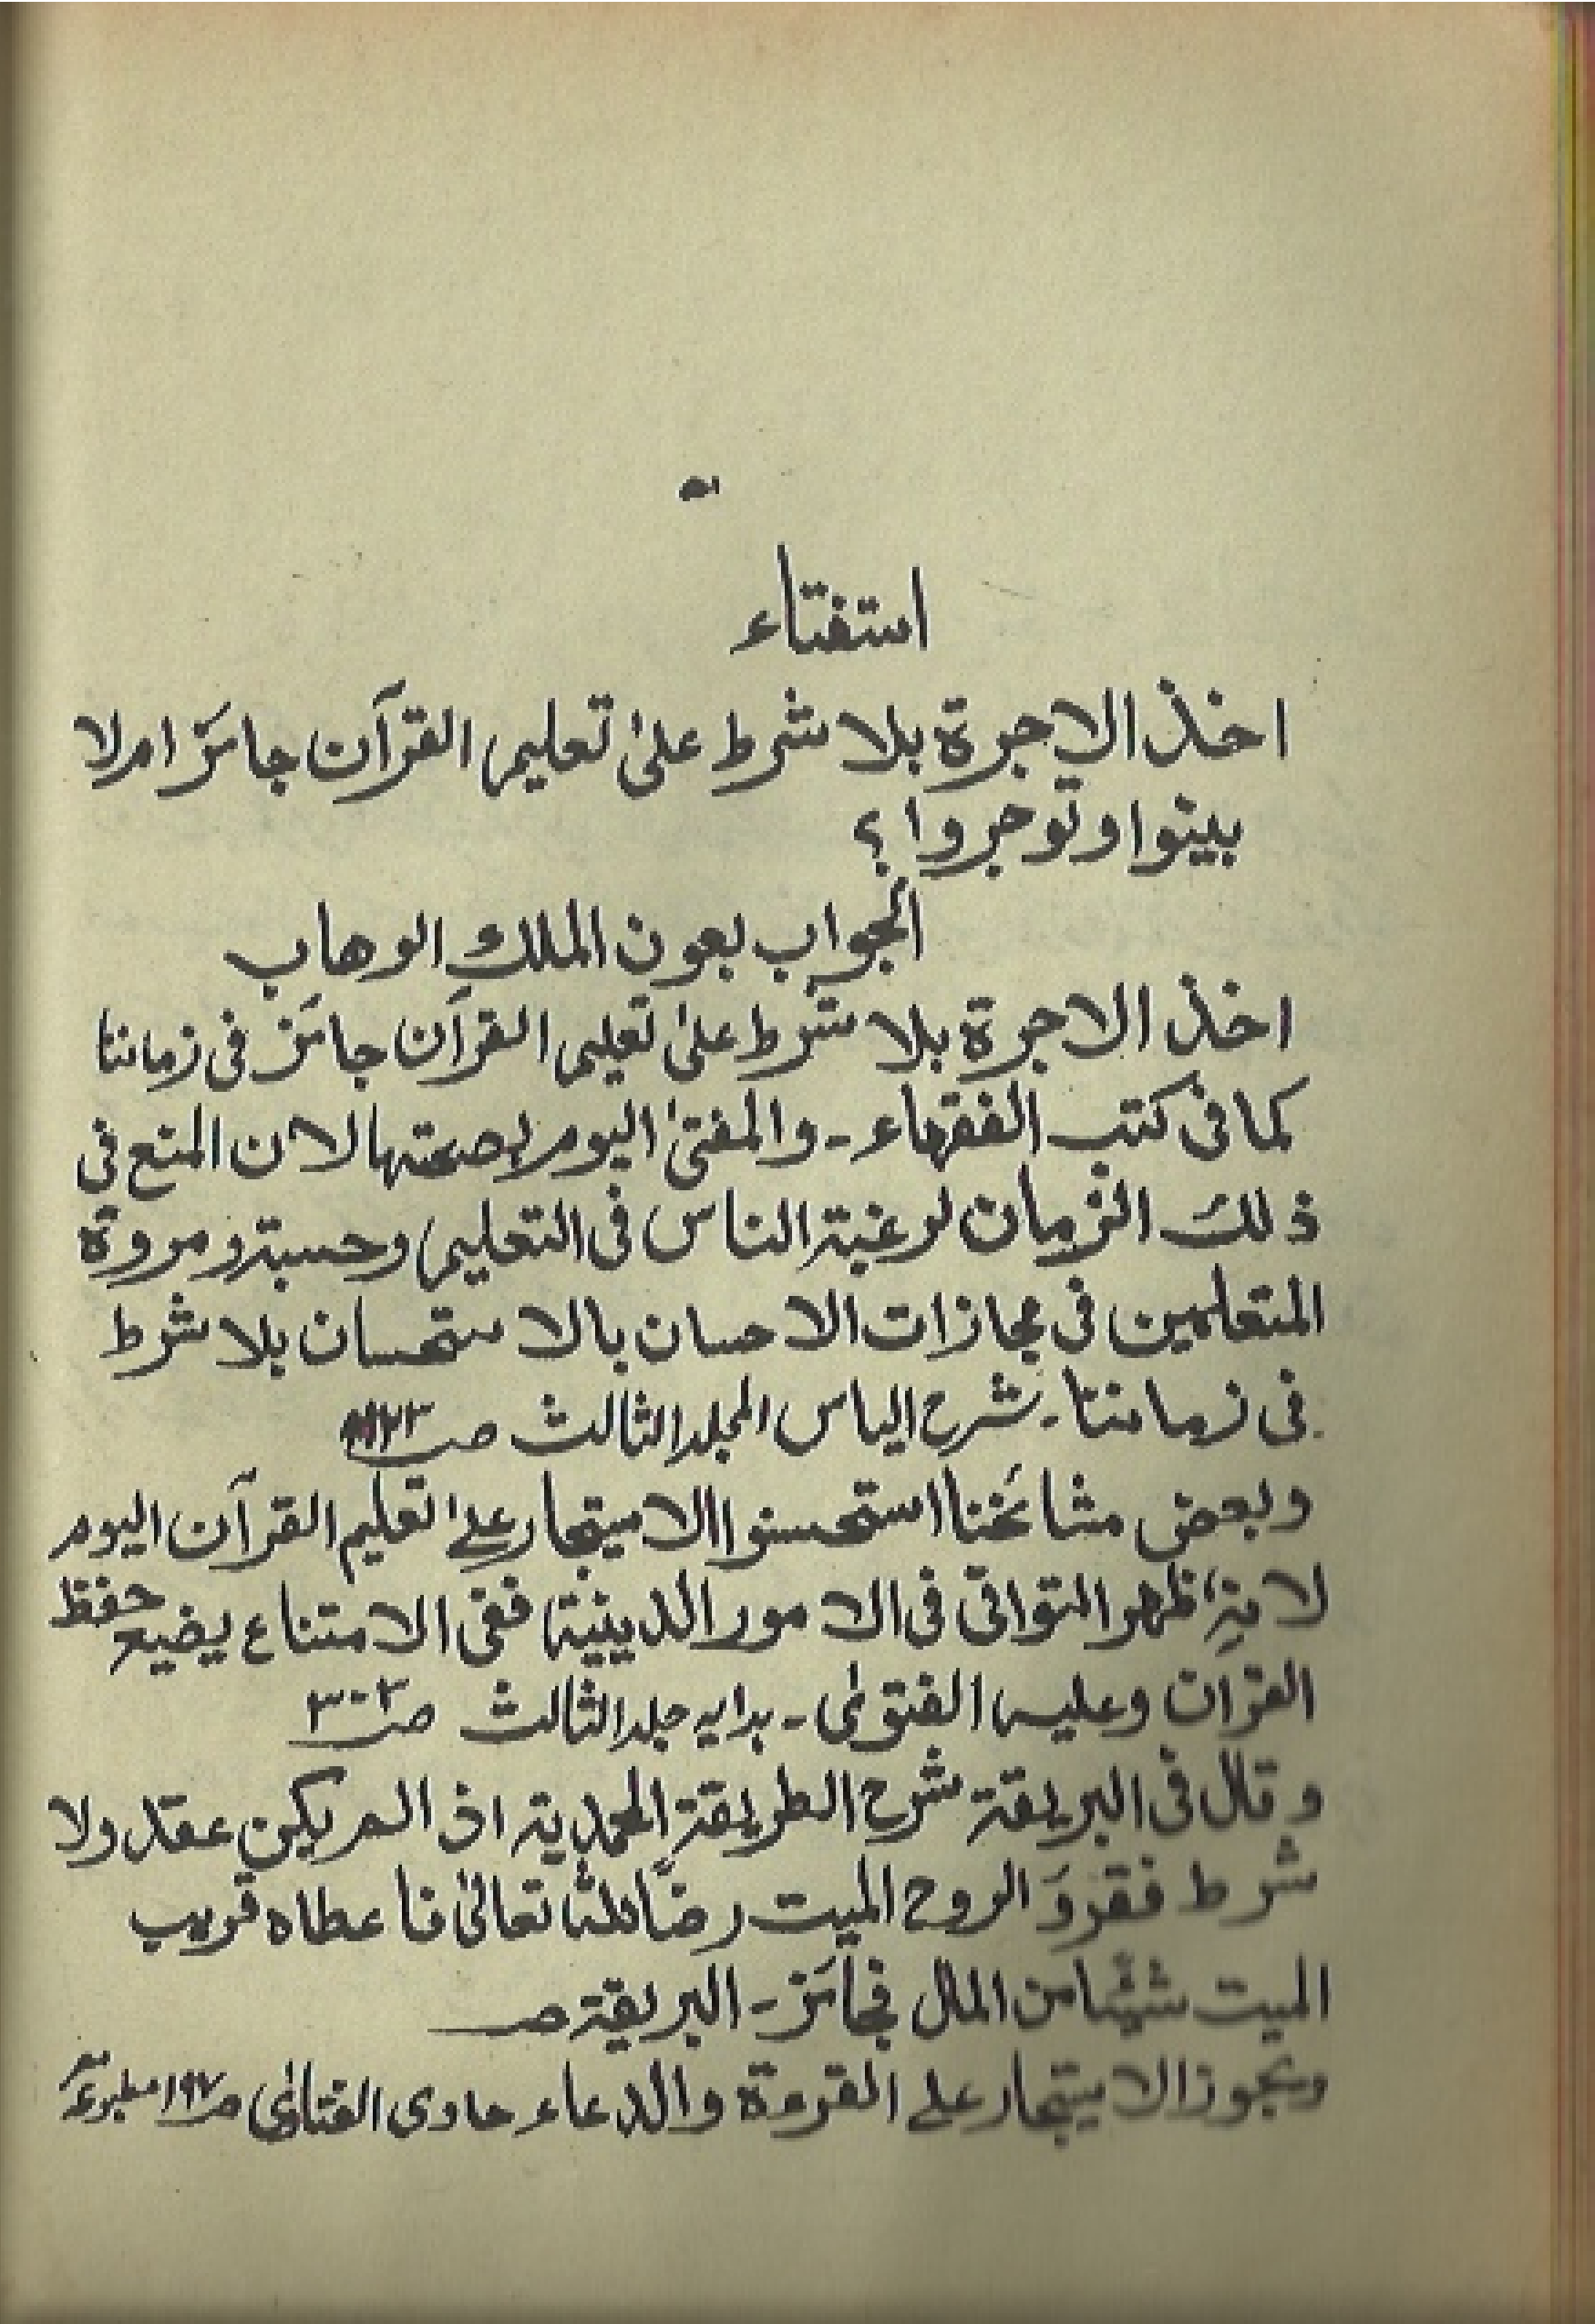 استفتاء
اخذ الاجرة بلا شرط علیٰ تعلیم القرآن جائز ام لا
بینوا وتوجروا؟
الجواب بعون الملك الوهاب
اخذ الاجرة بلا شرط علیٰ تعلیم القرآن جائز فی زماننا
كما فی كتب الفقهاء ـ والمفتیٰ الیوم بصحتها لان المنع فی
ذلك الزمان لرغبة الناس فی التعلیم وحسبة ومروة
المتعلمین فی مجازات الاحسان بالاستحسان بلا شرط
فی زماننا ـ شرح الیاس المجلد الثالث صـ
وبعض مشائخنا استحسنوا الاستیجار علے تعلیم القرآن الیوم
لانہ ظهر التوانی فی الامور الدینیة ففی الامتناع یضیع حفظ
القرآن وعلیہ الفتویٰ ـ ہدایہ جلد الثالث صـ ٣٠٣
وقال فی البریقة شرح الطریقة المحمدیة اذ الم یكن عقد ولا
شرط فقرء الروح المیت رضاً للہ تعالیٰ فاعطاه قریب
المیت شیئا من المال فجائز ـ البریقة صـ
ویجوز الاستیجار علے القرءة والدعاء حاوی الفتاویٰ صـ ١٩٧ مطبوعہ